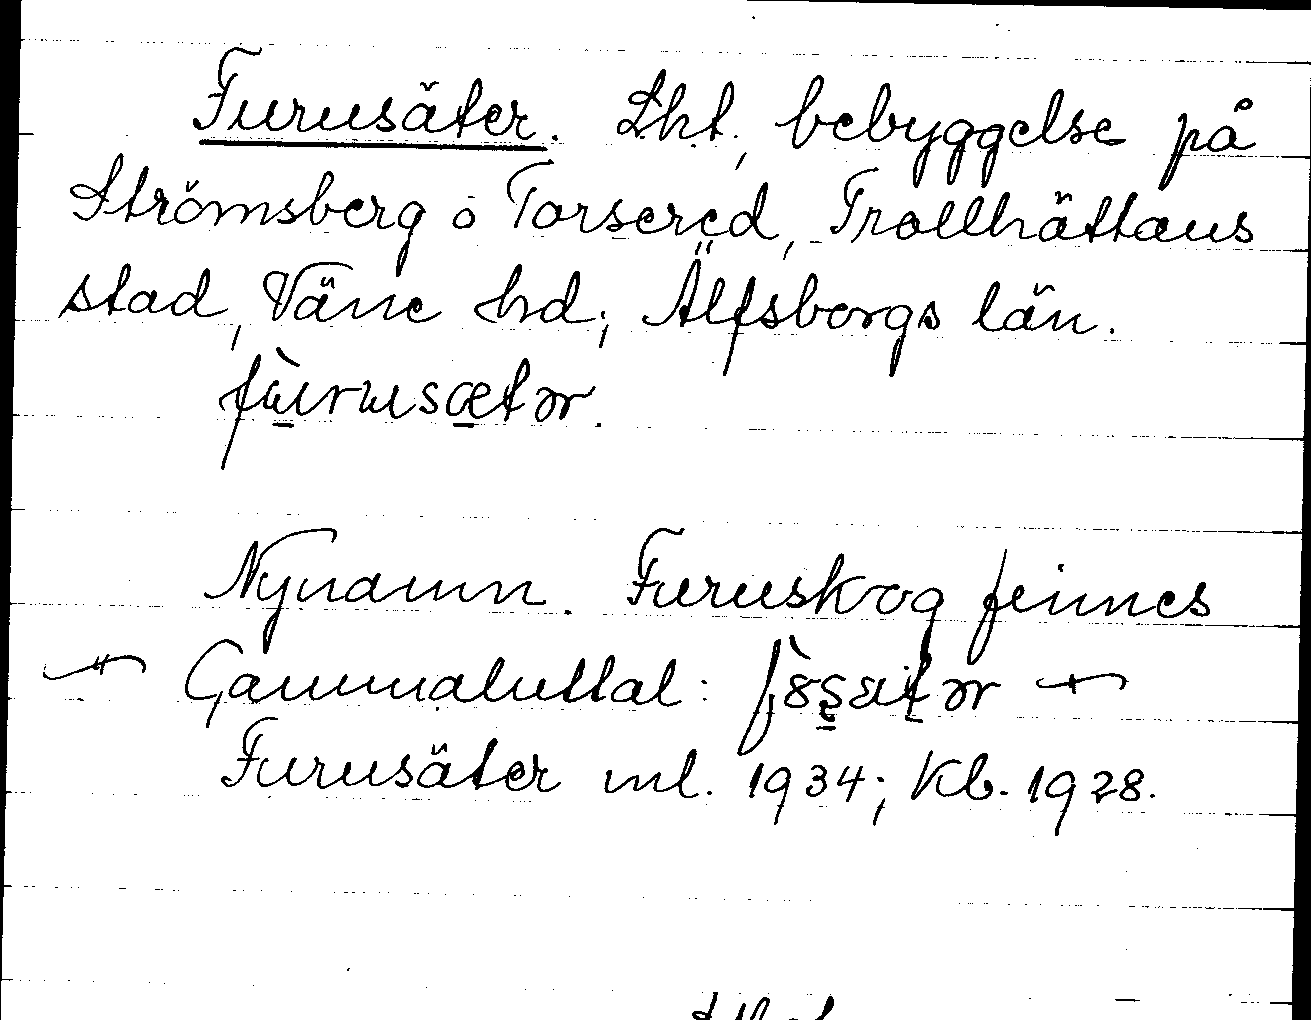 Furusäter. Lht., bebyggelse på
Strömsberg o Torsered, Trollhättans
stad, Väne hd; Älfsborgs län.
fùrusætər.
Nynamn. Furuskog finnes
Gammaluttal:
Furusäter ml. 1934; Kb. 1928.